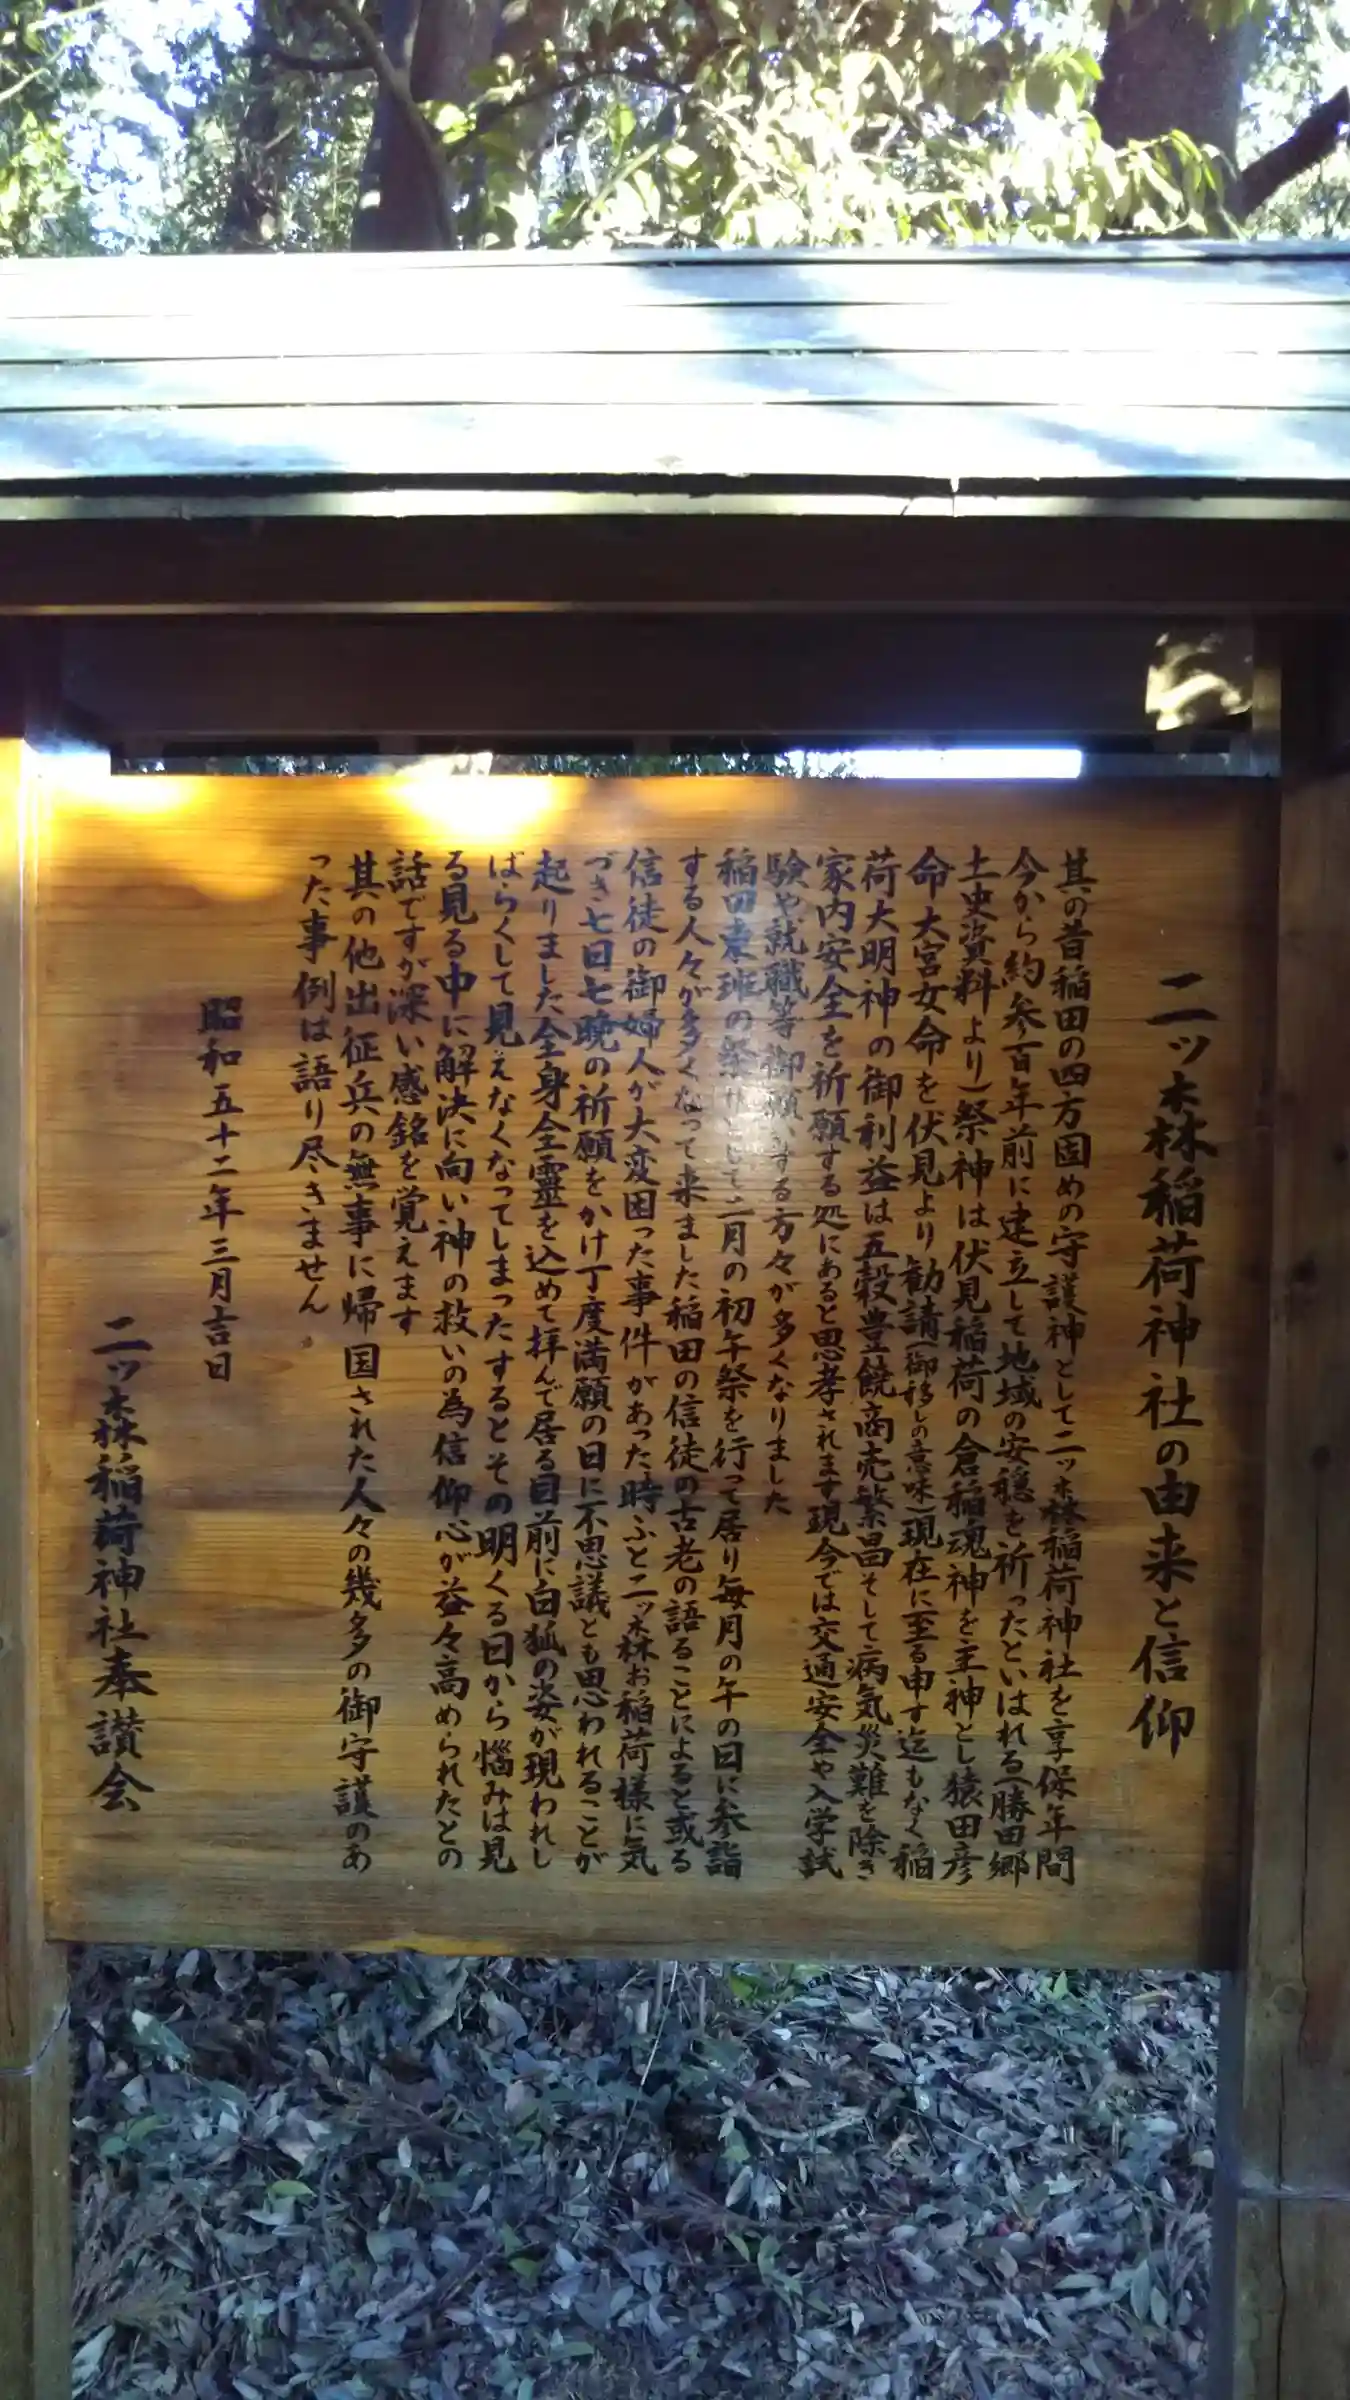 二ツ木林稲荷神社の由来と信仰
其の昔稲田の四方固めの守護神として二ツ木林稲荷神社を享保年間
今から約参百年前に建立して地域の安穏を祈ったといはれる(勝田郷
土史資料より)祭神は伏見稲荷の倉稲魂神を主神とし猿田彦
命大宮女命を伏見より勧請(御移しの意味)現在に至る申す迄もなく稲
荷大明神の御利益は五穀豊饒商売繁昌そして病気災難を除き
家内安全を祈願する処にあると思考されます現今では交通安全や入学試
験や就職等御願いする方々が多くなりました
稲田東班の祭りとして二月の初午祭を行って居り毎月の午の日に参詣
する人々が多くなって来ました稲田の信徒の古老の語ることによると或る
信徒の御婦人が大変困った事件があった時ふと二ツ木林お稲荷様に気
づき七日七晩の祈願をかけ丁度満願の日に不思議とも思われることが
起りました全身全霊を込めて拝んで居る目前に白狐の姿が現われし
ばらくして見えなくなってしまったするとその明くる日から悩みは見
る見る中に解決に向い神の救いの為信仰心が益々高められたとの
話ですが深い感銘を覚えます
其の他出征兵の無事に帰国された人々の幾多の御守護のあ
った事例は語り尽きません。
昭和五十二年三月吉日
二ツ木林稲荷神社奉讃会